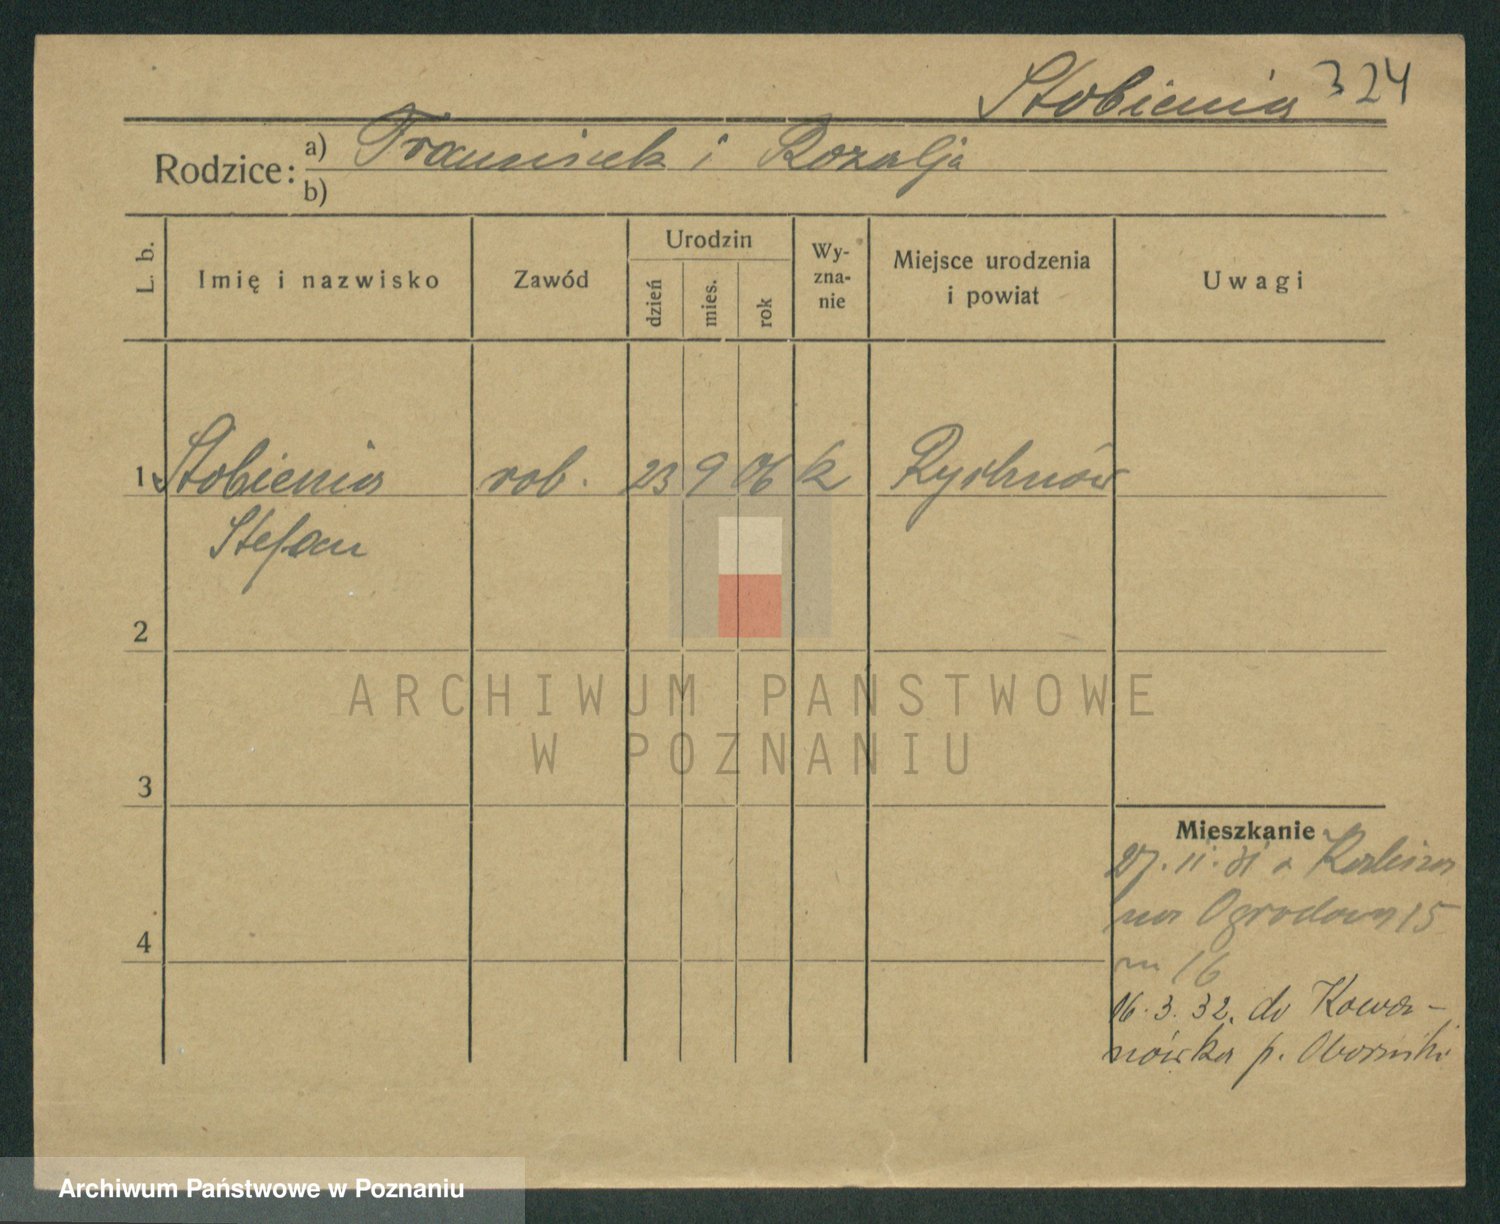 Stobienia 324
Rodzice: a) Franciszek i Rozalja
b)
L. b.
Imię i nazwisko
Zawód
Urodzin
dzień
mies.
rok
Wy-
zna-
nie
Miejsce urodzenia
i powiat
Uwagi
1 Stobienia rob. 23 9 06 k Rychnów
Stefan
2
ARCHIWUM PAŃSTWOWE
W POZNANIU
3
Mieszkanie
27. 11. 31 z Kalisza
na Ogrodową 15
m 16
4
16. 3. 32. do Kowa-
nówka p. Obornicki
Archiwum Państwowe w Poznaniu